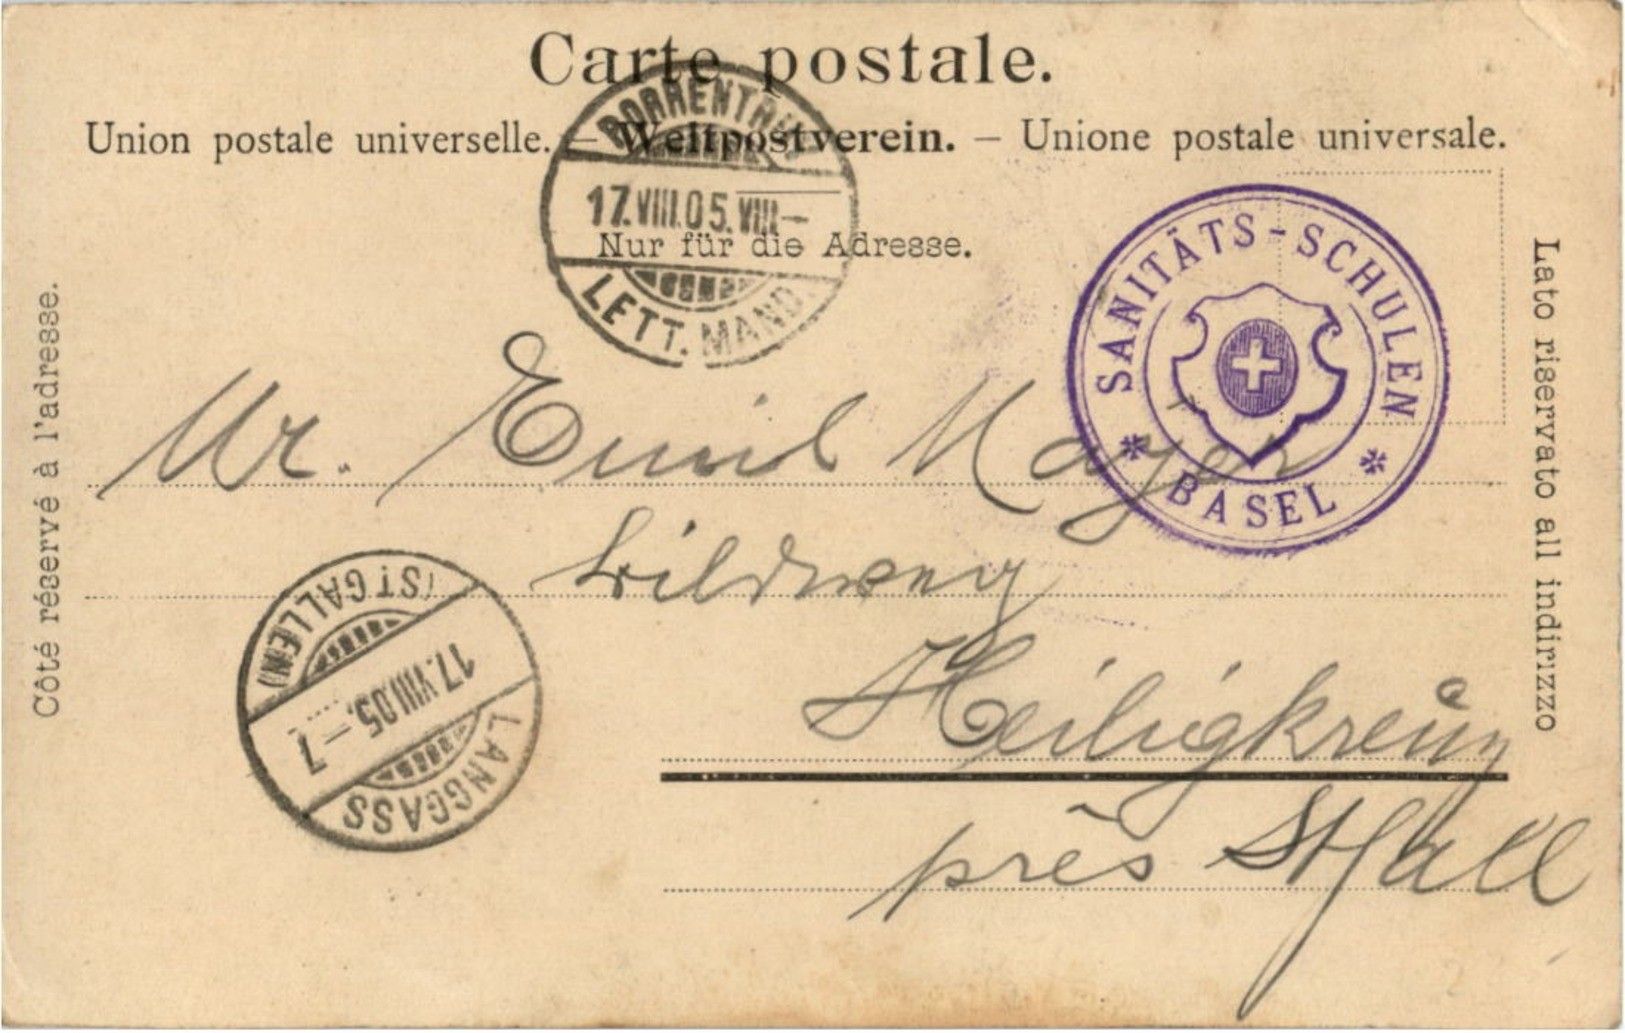 Carte postale.
Union postale universelle. — Weltpostverein. — Unione postale universale.
PORRENTRUY
17.VIII.05.VIII—
LETT. MAND.
Nur für die Adresse.
SANITÄTS-SCHULEN
* BASEL *
Côté réservé à l'adresse.
Lato riservato all indirizzo
Mr. Emil Mayer
Wildweg
Heiligkreuz
près St Gall
LANGGASS
17.VIII.05.–7
(ST GALLEN)